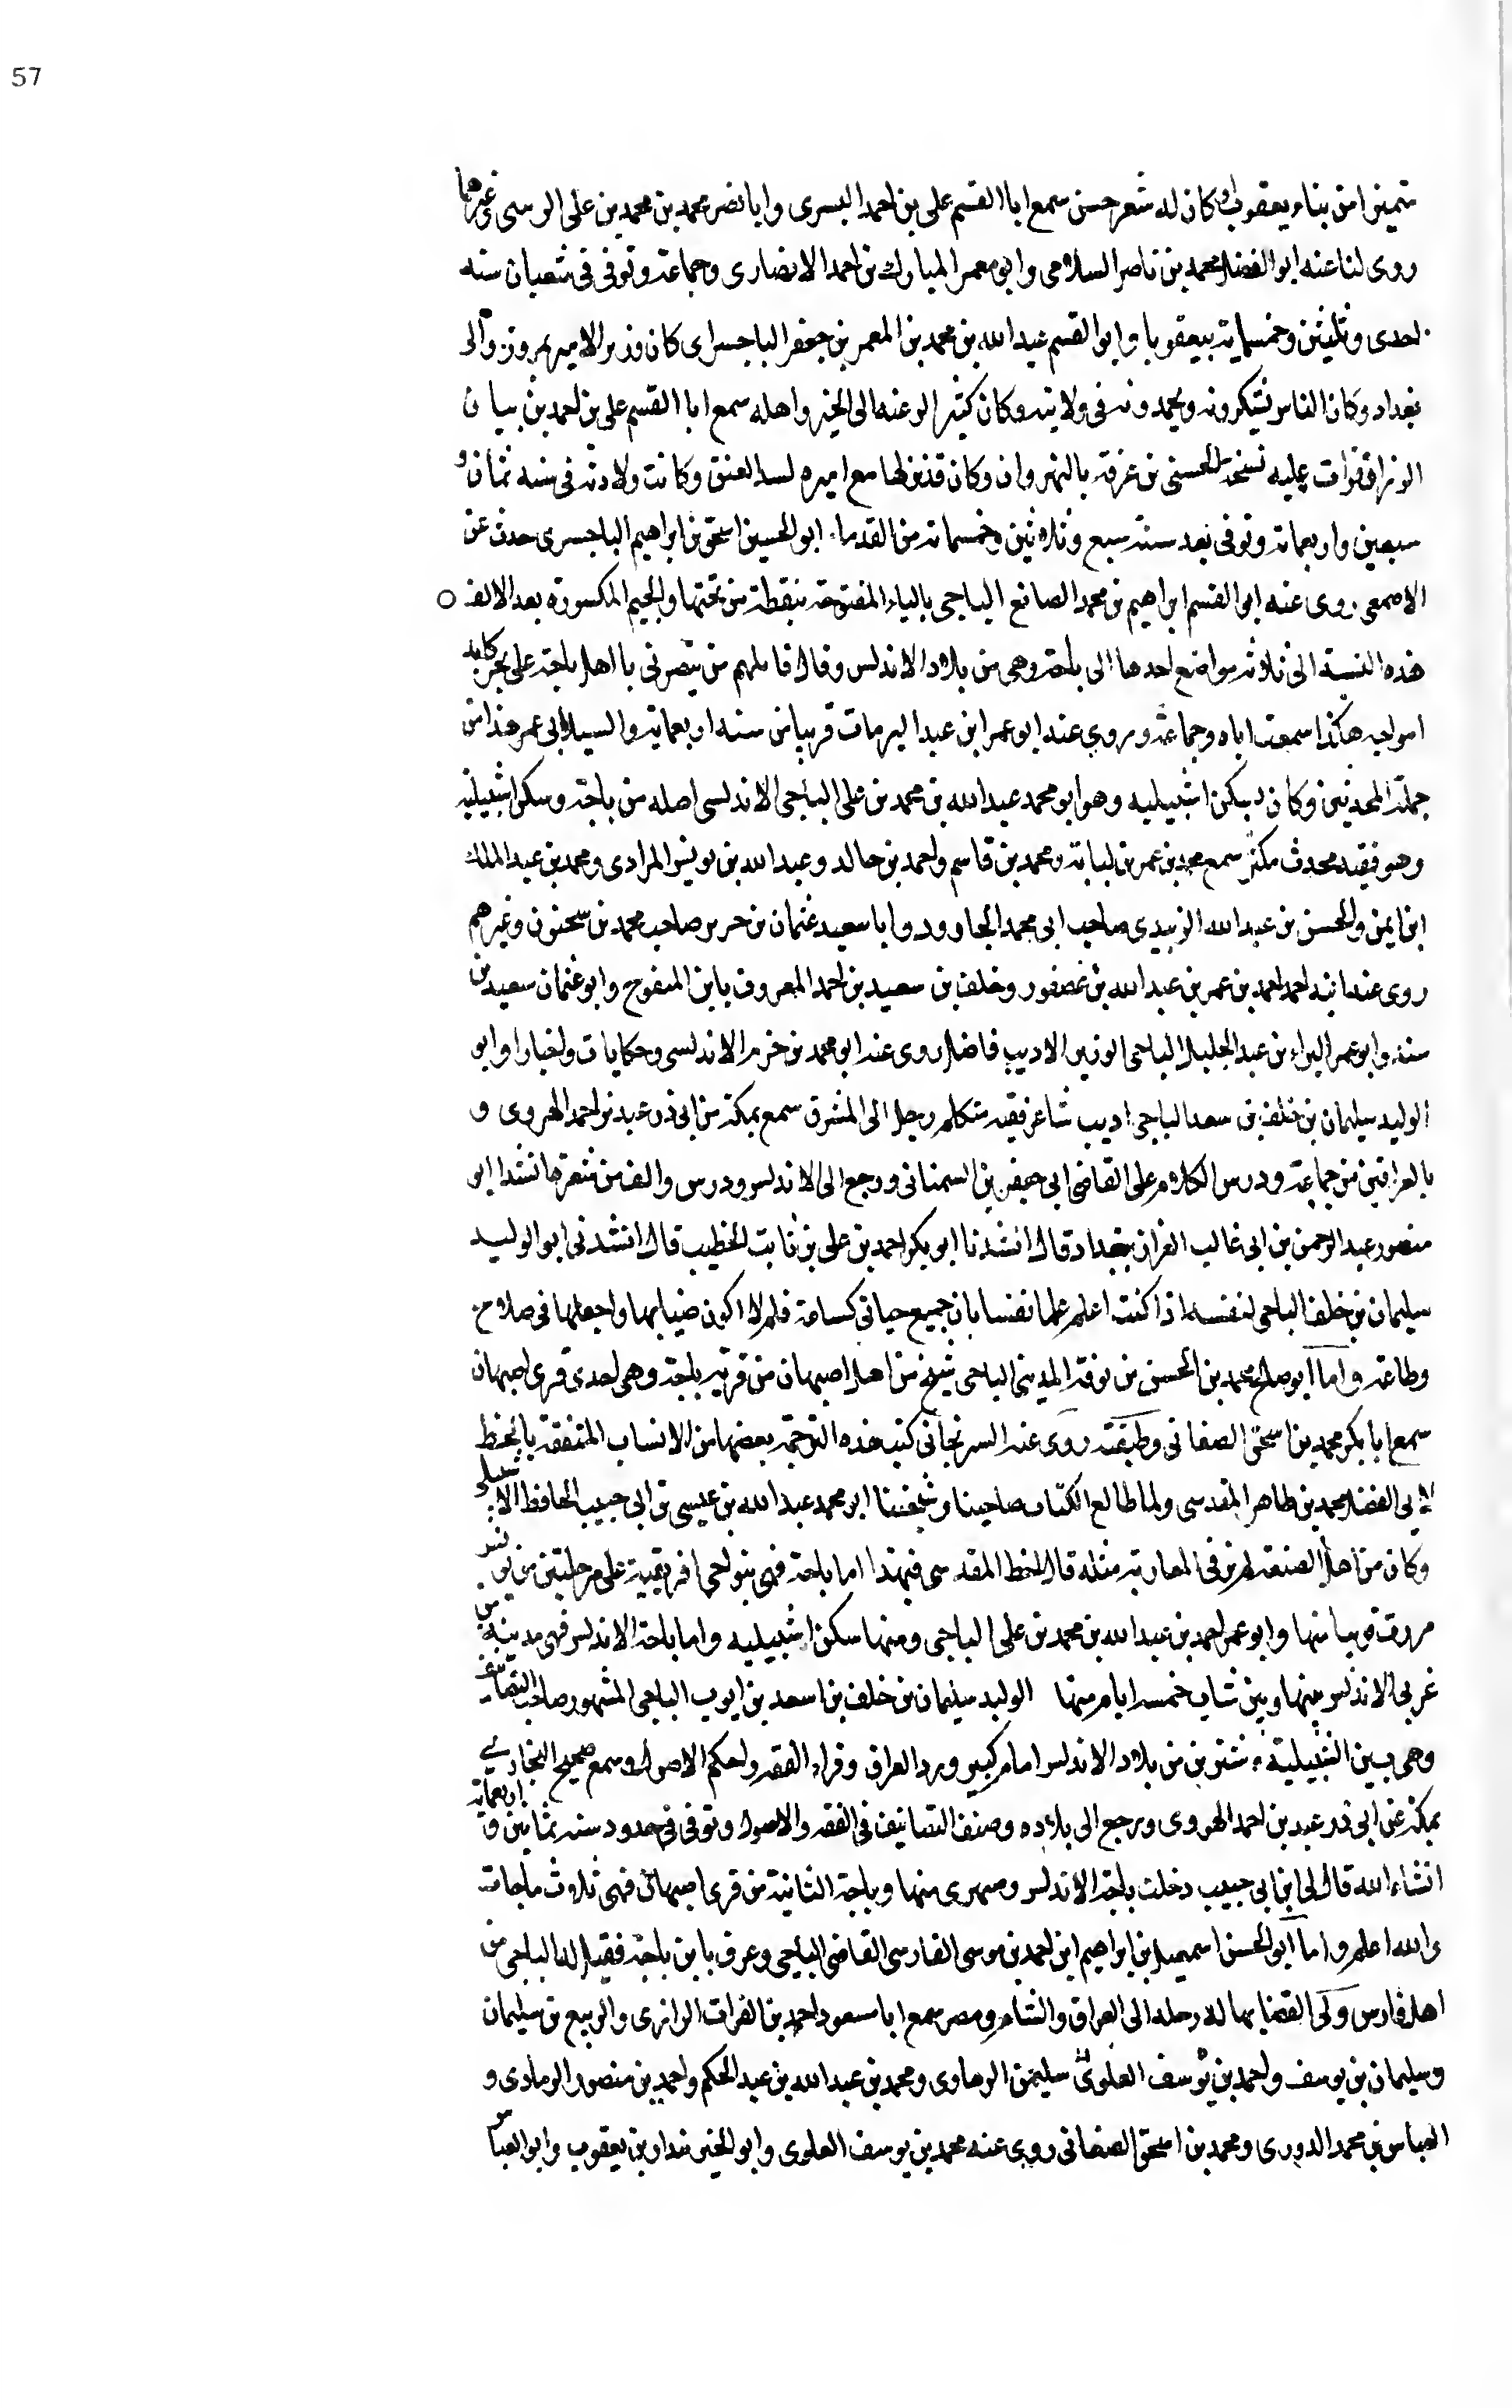 57
متميزا من بناء يعقوبا وكان له شعر حسن سمع ابا القسم على بن احمد البسرى وابا نصر محمد بن محمد بن على الرسى وغيرهما
روى لنا عنه ابو الفضل محمد بن ناصر السلامى وابو معمر المبارك بن احمد الانصارى وجماعة وتوفى فى شعبان سنه
احدى وثلثين وخمسماية ببعقوبا وابو القسم عبد الله بن محمد بن المعمر بن جعفر الباجسراى كان وزير الامير بهروز والى
بغداد وكان الناس يشكرونه ويحمدونه فى ولايته وكان كثير الرغبه الى الخير واهله سمع ابا القسم على بن احمد بن بيان
الرزاز قرات عليه نسخة الحسن بن عرفة بالنهروان وكان قد نزلها مع اميره لسد العتق وكانت ولادته فى سنه ثمان و
سبعين واربعماية وتوفى بعد سنة سبع وثلاثين وخمسماية من القدماء ابو الحسين اسحق بن ابراهيم الباجسرى حدث عن
الاصمعى روى عنه ابى القسم ابراهيم بن محمد الصانع الباجى بالباء المفتوحة بنقطة من تحتها والجيم المكسورة بعد الالف
هذه النسبة الى ثلاثة مواضع احدها الى باجة وهى من بلاد الاندلس وقال قايلهم من يتصرنى يا اهل باجة على
هكذا سمعت اباه وجماعة وروى عنه ابو عمر ابن عبد البر مات قريبا من سنه اربعماية والسيد ابى عمر هذا من
جملة المحدثين وكان يسكن اشبيليه وهو ابو محمد عبد الله بن محمد بن على الباجى الاندلسى اصله من باجة وسكن اشبيليه
وهو فقيه محدث مكثر سمع محمد بن عمر بن لبابة ومحمد بن قاسم واحمد بن خالد وعبد الله بن يونس المرادى ومحمد بن عبد الملك
ابن ايمن والحسن بن عبد الله الزبيدى صاحب ابى محمد الجارود وابا سعيد عثمان بن جرير صاحب محمد بن سحنون وغيرهم
روى عنه ابنه احمد احمد بن عمر بن عبد الله بن عصفور وخلف بن سعيد بن احمد المعروف بابن المنفوح وابو عثمان سعيد بن
سنة وابو عمر البراء بن عبد الجليل الباجى الوزير الاديب فاضل روى عنه ابو محمد بن حزم الاندلسى وحكايات واخبارا وابو
الوليد سليمان بن خلف بن سعد الباجى اديب شاعر فقيه متكلم رحل الى المشرق سمع بمكة من ابى ذر عبد بن احمد الهروى و
بالعراقين من جماعة ودرس الكلام على القاضى ابى جعفر بن السمنانى ورجع الى الاندلس ودرس والف من شعره ما انشدنا ابو
منصور عبد الرحمن بن ابى غالب القزاز ببغداد قال انشدنا ابو بكر احمد بن على بن ثابت الخطيب قال انشدنى ابو الوليد
سليمان بن خلف الباجى لنفسه اذا كنت اعلم علما نفسا بان جميع حياتى كساعة فلم لا اكون ضنينا بها واجعلها فى صلاح
وطاعة واما ابو صالح محمد بن الحسن بن بوقة المدينى الباجى شيخ من اهل اصبهان من قرية باجة وهى احدى قرى اصبهان
سمع ابا بكر محمد بن اسحق الصغانى وطبقته روى عنه السرنجانى كتب هذه الترجمة بعضها من الانساب المتفقة بالخط
لابى الفضل محمد بن طاهر المقدسى ولما طالع الكتاب صاحبنا وشيخنا ابو محمد عبد الله بن عيسى بن ابى حبيب الحافظ الاشبيلى
وكان من اهل الصنعة لم نر فى المغاربة مثله قال الخط المقدسى فيهذا اما باجة فهى بنواحى افريقية على مرحلتين من تونس
منها وابو عمر احمد بن عبد الله بن محمد بن على الباجى ومنها سكن اشبيليه واما باجة الاندلس فهى مدينة من
غربى الاندلس بينها وبين شاب خمسه ايام منها الوليد سليمان بن خلف بن اسعد بن ايوب الباجى المشهور صاحب التصانيف
وهى بين اشبيلية و شنترين من بلاد الاندلس امام كبير ورد العراق وقراء الفقه واحكم الاصول وسمع صحيح البخارى
بمكة عن ابى ذر عبد بن احمد الهروى ورجع الى بلاده وصنف التصانيف فى الفقه والاصول وتوفى فى حدود سنه ثمانين واربعماية
انشاء الله قال لى ابن ابى حبيب دخلت باجة الاندلس وصهرى منها وباجة الثانية من قرى اصبهان فهى ثلاث باجات
والله اعلم واما ابو الحسن اسمعيل بن ابراهيم ابن احمد بن موسى الفارسى القاضى الباجى وعرف بابن باجة فقيل له الباجى من
اهل فارس ولى القضا بها له رحله الى العراق والشام ومصر سمع ابا مسعود احمد بن الفرات الرازى والربيع بن سليمان
وسليمان بن يوسف واحمد بن يوسف العلوى سليمن الرهاوى ومحمد بن عبد الله بن عبد الحكم واحمد بن منصور الرمادى و
العباس بن محمد الدورى ومحمد بن اسحق الصغانى روى عنه محمد بن يوسف العلوى وابو الخير بندار بن يعقوب وابو العباس